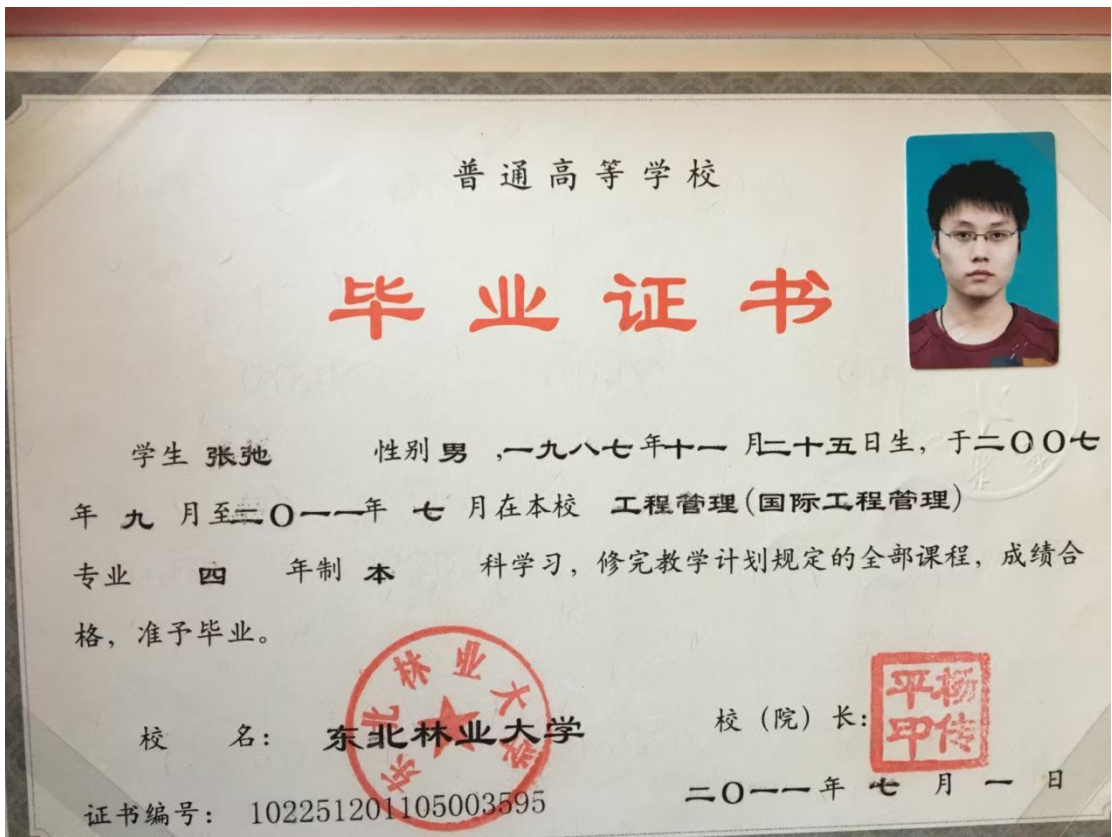 普通高等学校
毕业证书
学生 张弛 性别 男 ,一九八七年十一月二十五日生，于二〇〇七
年 九 月至二〇一一年 七 月在本校 工程管理(国际工程管理)
专业 四 年制 本 科学习，修完教学计划规定的全部课程，成绩合
格，准予毕业。
东北林业大学
校 名： 东北林业大学
校（院）长：
杨传平印
二〇一一年 七 月 一 日
证书编号： 102251201105003595